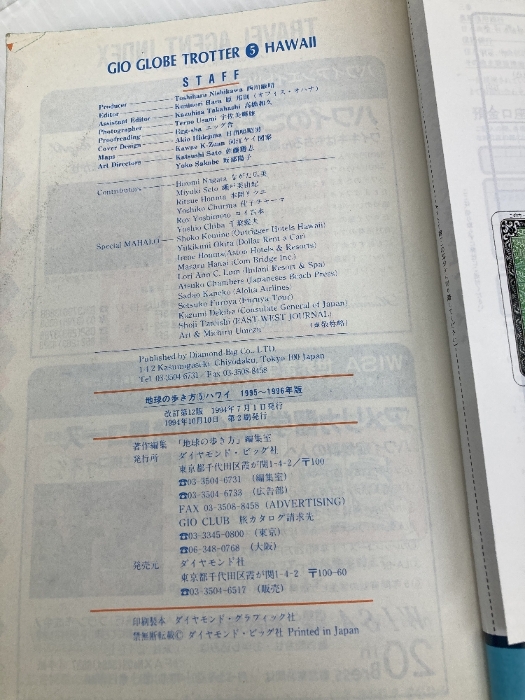 GIO GLOBE TROTTER 5 HAWAII
STAFF
Producer Toshiharu Nishikawa 西川敏晴
Editor Kuninori Hara 原 (オフィス・オハナ)
Assistant Editor Kazuhisa Takahashi 高橋和久
Photographer Teruo Usami 宇佐美輝雄
Proofreading Egg-sha エッグ舎
Cover Design Akio Hidejima 日出嶋昭男
Maps Kawae K-Zuan 河江ケイ図案
Art Directors Katsushi Sato 佐藤
Yoko Sakabe 坂部陽子
Contributors Hiromi Nagata ながた広美
Miyuki Seto 瀬戸美由紀
Ritsue Honma 本間リツエ
Yoshiko Churma 佳子チャーマ
Koy Yoshimoto コイ吉本
Yoshio Chiba 千葉
Special MAHALO Shoko Komine (Outrigger Hotels Hawaii)
Yukikuni Okita (Dollar Rent a Car)
Irene Honma (Aston Hotels & Resorts)
Masaru Hanai (Com Bridge Inc.)
Lori Ann C. Lum (Ihilani Resort & Spa)
Atsuko Chambers (Japanese Beach Press)
Sadao Kaneko (Aloha Airlines)
Setsuko Furuya (Furuya Tour)
Kazumi Dekiba (Consulate General of Japan)
Shoji Tateishi (EAST-WEST JOURNAL)
Art & Michiru Umezu (章敬称略)
Published by Diamond-Big Co., LTD.
1-4-2 Kasumigaseki, Chiyodaku, Tokyo 100 Japan
Tel. 03-3504-6731 Fax 03-3508-8458
地球の歩き方⑤ハワイ 1995〜1996年版
改訂第12版 1994年7月1日発行
1994年10月10日 第2刷発行
著作編集 「地球の歩き方」編集室
発行所 ダイヤモンド・ビッグ社
東京都千代田区霞が関1-4-2/〒100
☎03-3504-6731 (編集室)
☎03-3504-6733 (広告部)
FAX 03-3508-8458 (ADVERTISING)
GIO CLUB 旅カタログ請求先
☎03-3345-0800 (東京)
☎06-348-0768 (大阪)
発売元 ダイヤモンド社
東京都千代田区霞が関1-4-2 〒100-60
☎03-3504-6517 (販売)
印刷製本 ダイヤモンド・グラフィック社
禁無断転載© ダイヤモンド・ビッグ社 Printed in Japan